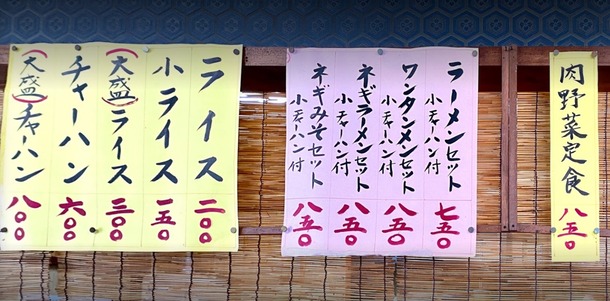 肉野菜定食 八五〇
ラーメンセット 小チャーハン付 七五〇
ワンタンメンセット 小チャーハン付 八五〇
ネギラーメンセット 小チャーハン付 八五〇
ネギみそセット 小チャーハン付 八五〇
ライス 二〇〇
小ライス 一五〇
(大盛)ライス 三〇〇
チャーハン 六〇〇
(大盛)チャーハン 八〇〇